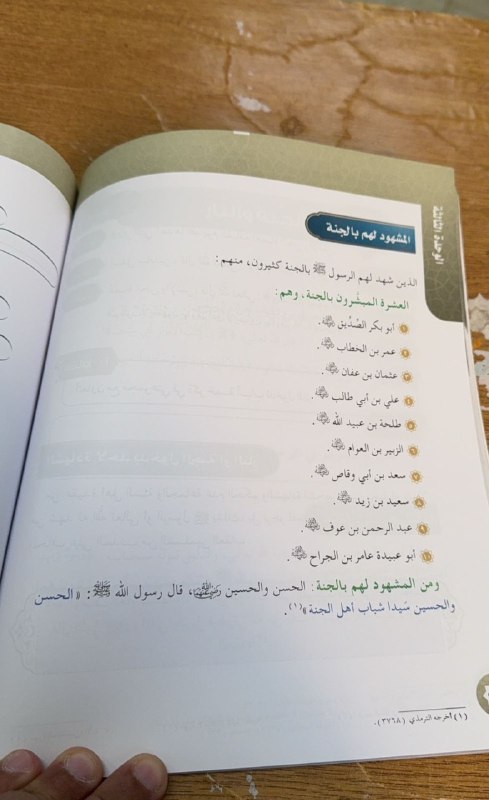 الوحدة الثالثة
المشهود لهم بالجنة
الذين شهد لهم الرسول ﷺ بالجنة كثيرون، منهم:
العشرة المبشَّرون بالجنة، وهم:
١ أبو بكر الصِّدِّيق رضي الله عنه.
٢ عمر بن الخطاب رضي الله عنه.
٣ عثمان بن عفان رضي الله عنه.
٤ علي بن أبي طالب رضي الله عنه.
٥ طلحة بن عبيد الله رضي الله عنه.
٦ الزبير بن العوام رضي الله عنه.
٧ سعد بن أبي وقاص رضي الله عنه.
٨ سعيد بن زيد رضي الله عنه.
٩ عبد الرحمن بن عوف رضي الله عنه.
١٠ أبو عبيدة عامر بن الجراح رضي الله عنه.
ومن المشهود لهم بالجنة: الحسن والحسين رضي الله عنهما، قال رسول الله ﷺ: «الحسن
والحسين سَيِّدا شباب أهل الجنة»(١).
(١) أخرجه الترمذي (٣٧٦٨).